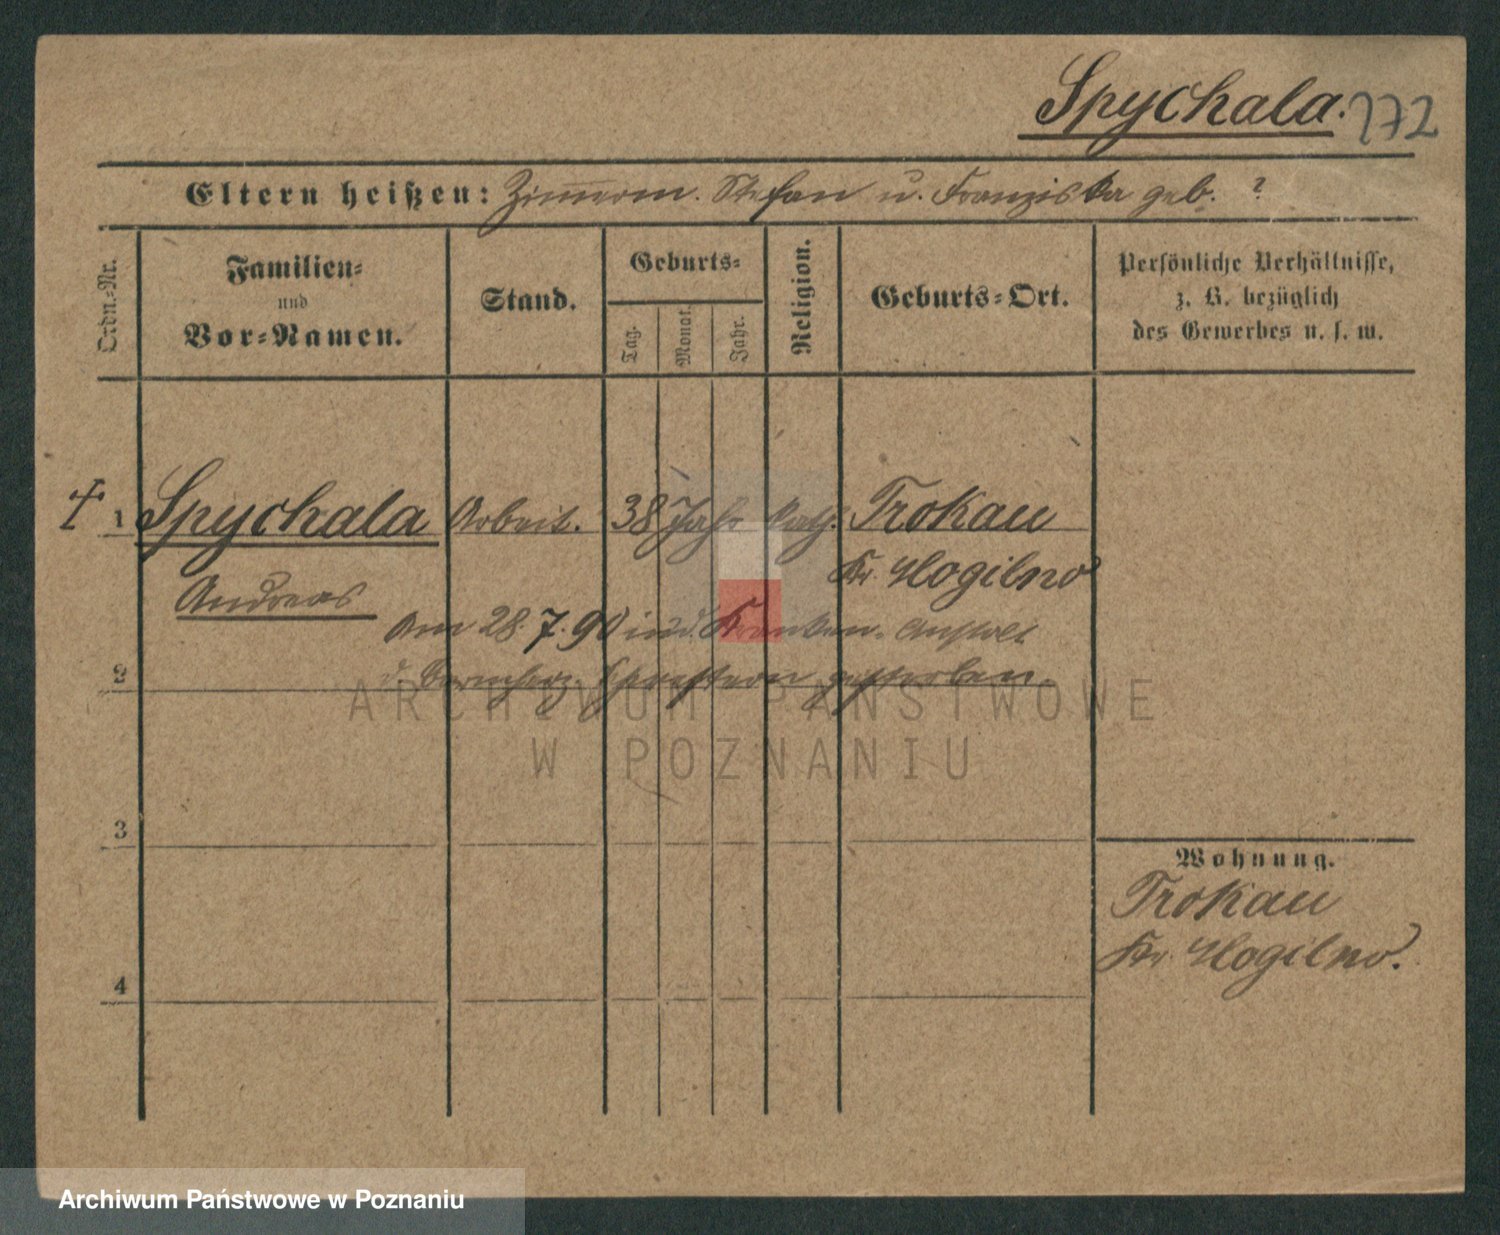 Spychala. 272
Eltern heißen: Zimmerm. Stefan u. Franziska geb. ?
Ordn.-Nr.
Familien-
und
Vor-Namen.
Stand.
Geburts-
Tag.
Monat.
Jahr.
Religion.
Geburts-Ort.
Persönliche Verhältnisse,
z. B. bezüglich
des Gewerbes u. s. w.
† 1 Spychala Arbeit. 38 Jahr kath. Trokau
Kr. Mogilno
Andreas
Am 28.7.90 in d. Kranken-Anstalt
2 d. Barmherz. Schwestern gestorben.
3
4
Wohnung.
Trokau
Kr. Mogilno.
ARCHIWUM PAŃSTWOWE
W POZNANIU
Archiwum Państwowe w Poznaniu